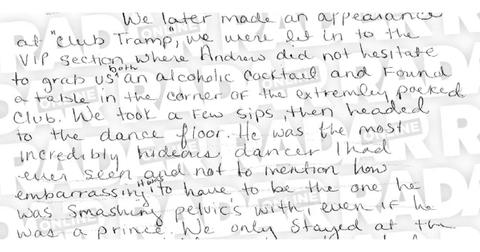 We later made an appearance
at "Club Tramp", we were let in to the
VIP section, where Andrew did not hesitate
to grab us both an alcoholic cocktail and found
a table in the corner of the extremley packed
club. We took a few sips, then headed
to the dance floor. He was the most
incredibly hideous dancer I had
ever seen and not to mention how
embarrassing it was to have to be the one he
was smashing pelvic's with, even if he
was a prince. We only stayed at the
RADAR
ONLINE